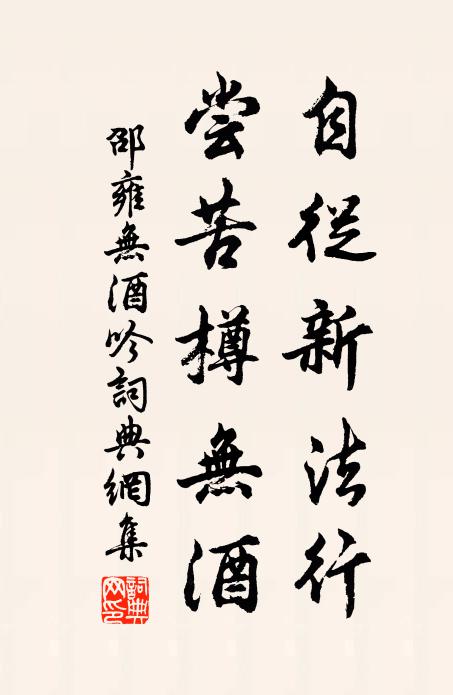 自從新法行
尝苦樽無酒
邵雍無酒吟詞典網集
詞典網印